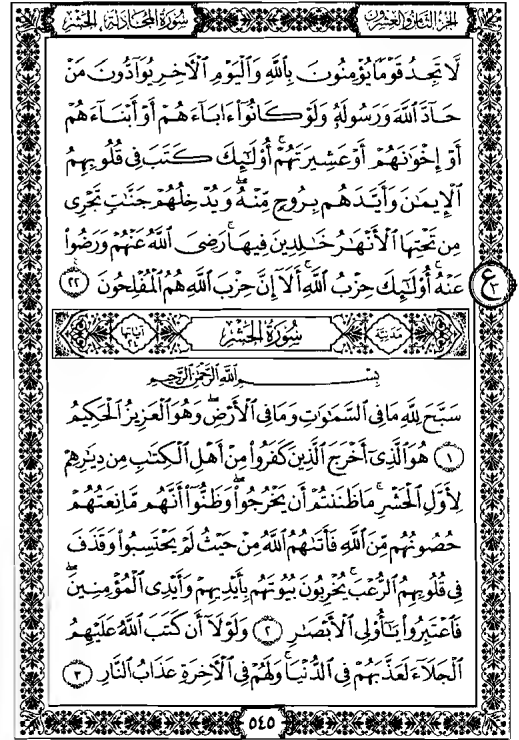 سُورَةُ المُجَادلَة الحَشر
الجزء الثامن والعشرون
لَّا تَجِدُ قَوْمًا يُؤْمِنُونَ بِٱللَّهِ وَٱلْيَوْمِ ٱلْأَخِرِ يُوَآدُّونَ مَنْ
حَآدَّ ٱللَّهَ وَرَسُولَهُۥ وَلَوْ كَانُوٓا۟ ءَابَآءَهُمْ أَوْ أَبْنَآءَهُمْ
أَوْ إِخْوَٰنَهُمْ أَوْ عَشِيرَتَهُمْ ۚ أُو۟لَٰٓئِكَ كَتَبَ فِى قُلُوبِهِمُ
ٱلْإِيمَٰنَ وَأَيَّدَهُم بِرُوحٍ مِّنْهُ ۖ وَيُدْخِلُهُمْ جَنَّٰتٍ تَجْرِى
مِن تَحْتِهَا ٱلْأَنْهَٰرُ خَٰلِدِينَ فِيهَا ۚ رَضِىَ ٱللَّهُ عَنْهُمْ وَرَضُوا۟
عَنْهُ ۚ أُو۟لَٰٓئِكَ حِزْبُ ٱللَّهِ ۚ أَلَآ إِنَّ حِزْبَ ٱللَّهِ هُمُ ٱلْمُفْلِحُونَ ٢٢
ع ٣
مَدَنيّة
سُورَةُ الحَشْرِ
آياتها ٢٤
بِسْمِ ٱللَّهِ ٱلرَّحْمَٰنِ ٱلرَّحِيمِ
سَبَّحَ لِلَّهِ مَا فِى ٱلسَّمَٰوَٰتِ وَمَا فِى ٱلْأَرْضِ ۖ وَهُوَ ٱلْعَزِيزُ ٱلْحَكِيمُ
١ هُوَ ٱلَّذِىٓ أَخْرَجَ ٱلَّذِينَ كَفَرُوا۟ مِنْ أَهْلِ ٱلْكِتَٰبِ مِن دِيَٰرِهِمْ
لِأَوَّلِ ٱلْحَشْرِ ۚ مَا ظَنَنتُمْ أَن يَخْرُجُوا۟ ۖ وَظَنُّوٓا۟ أَنَّهُم مَّانِعَتُهُمْ
حُصُونُهُم مِّنَ ٱللَّهِ فَأَتَىٰهُمُ ٱللَّهُ مِنْ حَيْثُ لَمْ يَحْتَسِبُوا۟ ۖ وَقَذَفَ
فِى قُلُوبِهِمُ ٱلرُّعْبَ ۚ يُخْرِبُونَ بُيُوتَهُم بِأَيْدِيهِمْ وَأَيْدِى ٱلْمُؤْمِنِينَ
فَٱعْتَبِرُوا۟ يَٰٓأُو۟لِى ٱلْأَبْصَٰرِ ٢ وَلَوْلَآ أَن كَتَبَ ٱللَّهُ عَلَيْهِمُ
ٱلْجَلَآءَ لَعَذَّبَهُمْ فِى ٱلدُّنْيَا ۖ وَلَهُمْ فِى ٱلْأَخِرَةِ عَذَابُ ٱلنَّارِ ٣
٥٤٥